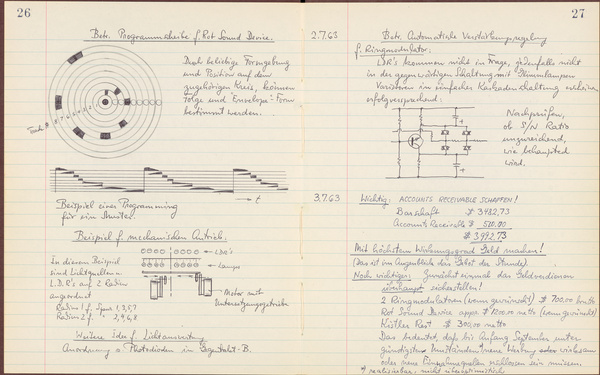 26
Betr. Programmscheibe f. Rot Sound Device.
Durch beliebige Formgebung
und Position auf dem
zugehörigen Kreis, können
Folge und "Envelope"-Form
bestimmt werden.
→ t
Beispiel einer Programmierung
für ein Muster.
Beispiel f. mechanischen Antrieb.
In diesem Beispiel
sind Lichtquellen u.
L.D.R's auf 2 Radien
angeordnet
Radius 1 f. Spur 1,3,5,7
Radius 2 f. " 2,4,6,8
← LDR's
← Lampen
← Motor mit
Untersetzungsgetriebe
Weitere Idee f. Lichtauswertung
Anordnung v. Photodioden in
27
2.7.63
Betr. Automatische Verstärkungsregelung
f. Ringmodulator:
LDR's kommen nicht in Frage, jedenfalls nicht
in der gegenwärtigen Schaltung mit Glimmlampen
Varistoren in einfacher Kaskadenschaltung
erfolgversprechend:
Nachprüfen,
ob S/N Ratio
unzureichend,
wie behauptet
wird.
3.7.63
Wichtig: ACCOUNTS RECEIVABLE SCHAFFEN!
Barschaft $ 3482,73
Accounts Receivable $ 510.00
$ 3992,73
Mit höchstem Wirkungsgrad Geld machen!
(Das ist im Augenblick ein Gebot der Stunde).
Noch wichtiger: Zunächst einmal das Geldverdienen
überhaupt sicherstellen!
2 Ringmodulatoren (wenn gewünscht) $ 700,00 netto
Rot Sound Device appr. $ 1200.00 netto (wenn gewünscht)
Rest $ 300,00 netto
Das bedeutet, daß bis Anfang September unter
günstigsten Umständen neue Werbung oder
oder neue Einnahmequellen erschlossen sein müssen.
realisierbar, nicht